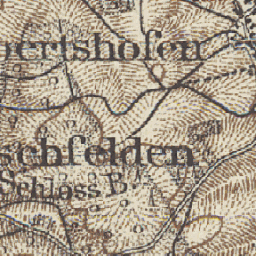 pertshofen
schfelden
Schloss B.